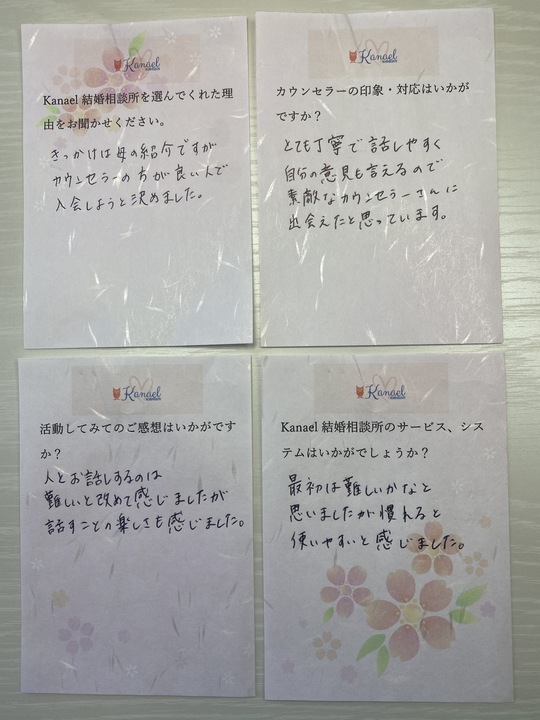 Kanael
Kanael 結婚相談所を選んでくれた理
由をお聞かせください。
きっかけは母の紹介ですが
カウンセラーの方が良い人で
入会しようと決めました。
Kanael
カウンセラーの印象・対応はいかが
ですか？
とても丁寧で話しやすく
自分の意見も言えるので
素敵なカウンセラーさんに
出会えたと思っています。
Kanael
活動してみてのご感想はいかがです
か？
人とお話しするのは
難しいと改めて感じましたが
話すことの楽しさも感じました。
Kanael
Kanael 結婚相談所のサービス、シス
テムはいかがでしょうか？
最初は難しいかなと
思いましたが慣れると
使いやすいと感じました。